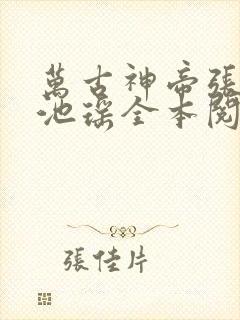 萬古神帝張
池瑤全本閱
張佳片